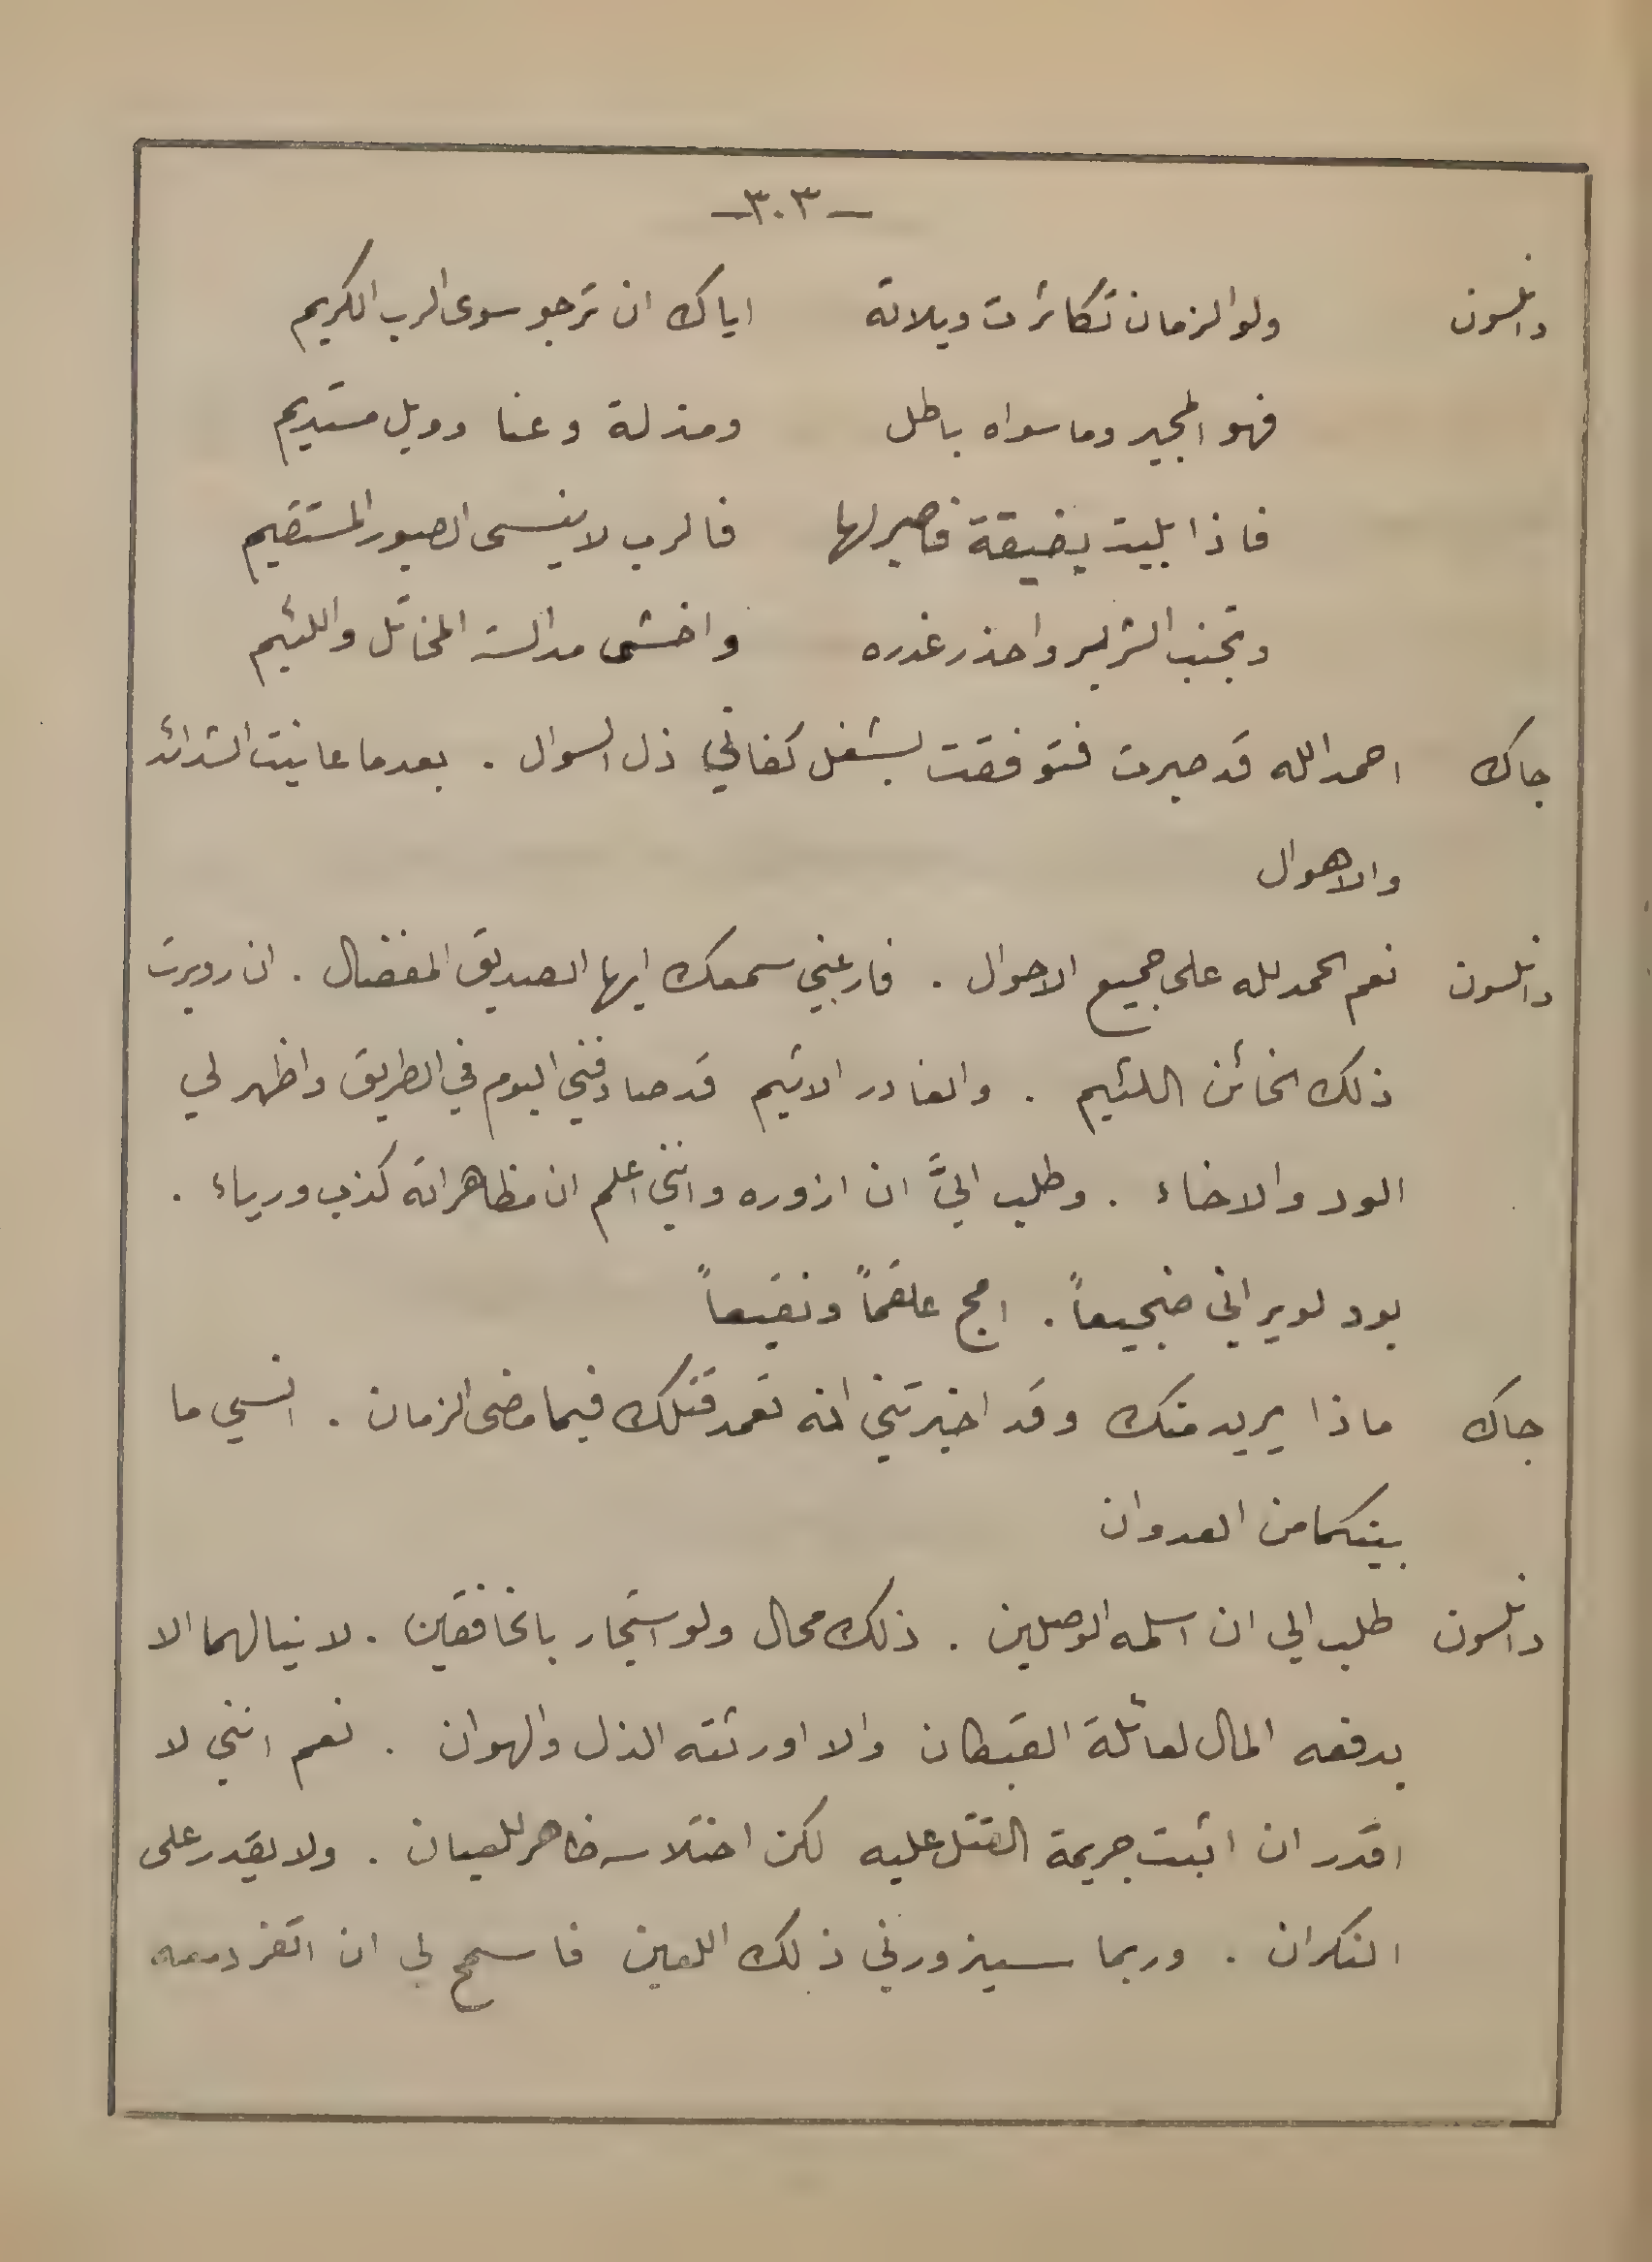 —٣٠٣—
دانلسون ولو الزمان تكاثرت ويلاته اياك ان ترجو سوى الرب الكريم
فهو المجير وما سواه باطل ومذلة وعنا وويل مستديم
فاذا بليت بضيقة فاصبر لها فالرب لا ينسى الصبور المستقيم
وتجنب الشرير واحذر غدره واخشى مدالسة المخاتل واللئيم
جاك احمد الله قد صبرت فتوفقت بشغل كفاني ذل السوال . بعدما عانيت الشدائد
والاهوال
دانلسون نعم الحمد لله على جميع الاحوال . فارعني سمعك ايها الصديق المفضال . ان روبرت
ذلك الخائن اللئيم . والغادر الاثيم قد صادفني اليوم في الطريق واظهر لي
الود والاخاء . وطلب اليَّ ان ازوره وانني اعلم ان مظاهراته كذب ورياء .
يود لو يراني ضجيعاً . امج علقماً ونقيعاً
جاك ماذا يريد منك وقد اخبرتني انه تعمد قتلك فيما مضى الزمان . انسي ما
بينكما من العدوان
دانلسون طلب الي ان اسلمه الوصلين . ذلك محال ولو استجار بالخافقين . لا ينالهما الا
بدفعه المال لعائلة القبطان والا اورثته الذل والهوان . نعم انني لا
اقدر ان اثبت جريمة القتل عليه لكن اختلاسه ظاهر للعيان . ولا يقدر على
النكران . وربما سيزورني ذلك اللعين فاسمح لي ان اتفرد معه